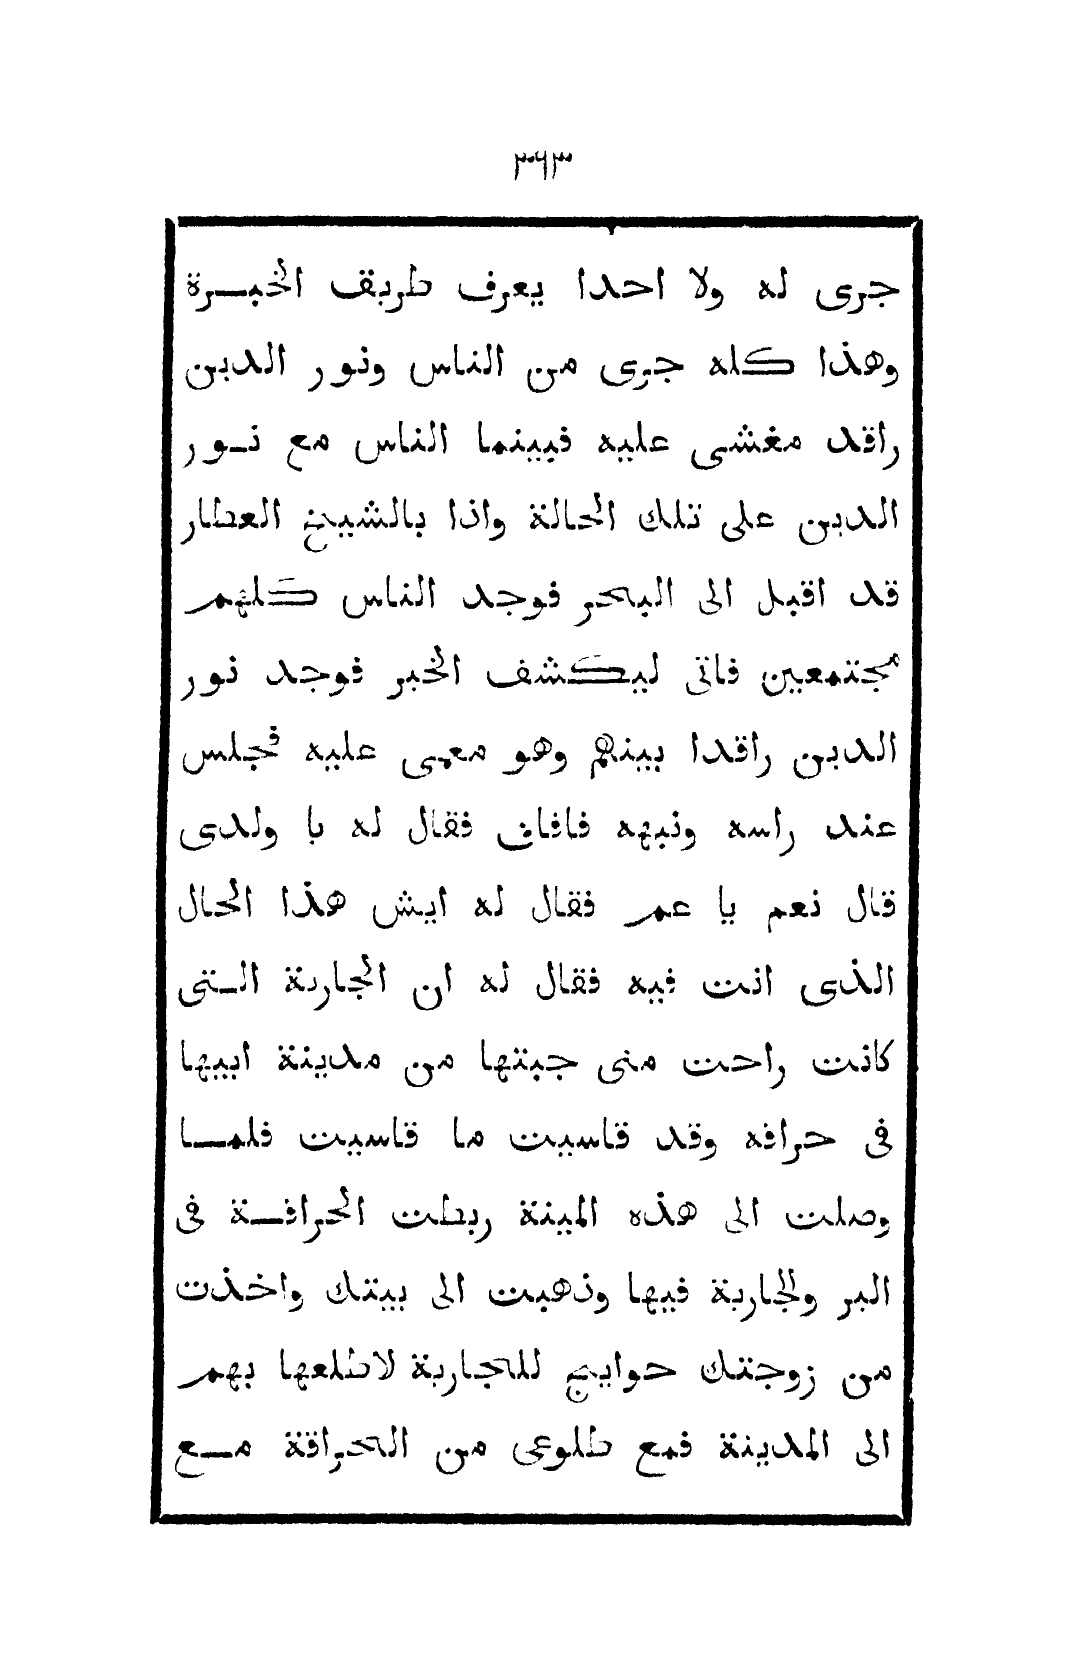 ٣٦٣
جرى له ولا احدا يعرف طريق الخبرة
وهذا كله جرى من الناس ونور الدين
راقد مغشى عليه فبينما الناس مع نور
الدين على تلك الحالة واذا بالشيخ العطار
قد اقبل الى البحر فوجد الناس كلهم
مجتمعين فاتى ليكشف الخبر فوجد نور
الدين راقدا بينهم وهو معمى عليه فجلس
عند راسه ونبهه فافاق فقال له يا ولدى
قال نعم يا عم فقال له ايش هذا الحال
الذى انت فيه فقال له ان الجارية التى
كانت راحت منى جبتها من مدينة ابيها
فى حرافه وقد قاسيت ما قاسيت فلما
وصلت الى هذه المينة ربطت الحرافة فى
البر والجارية فيها وذهبت الى بيتك واخذت
من زوجتك حوايج للجارية لاطلعها بهم
الى المدينة فمع طلوعى من الحراقة مع